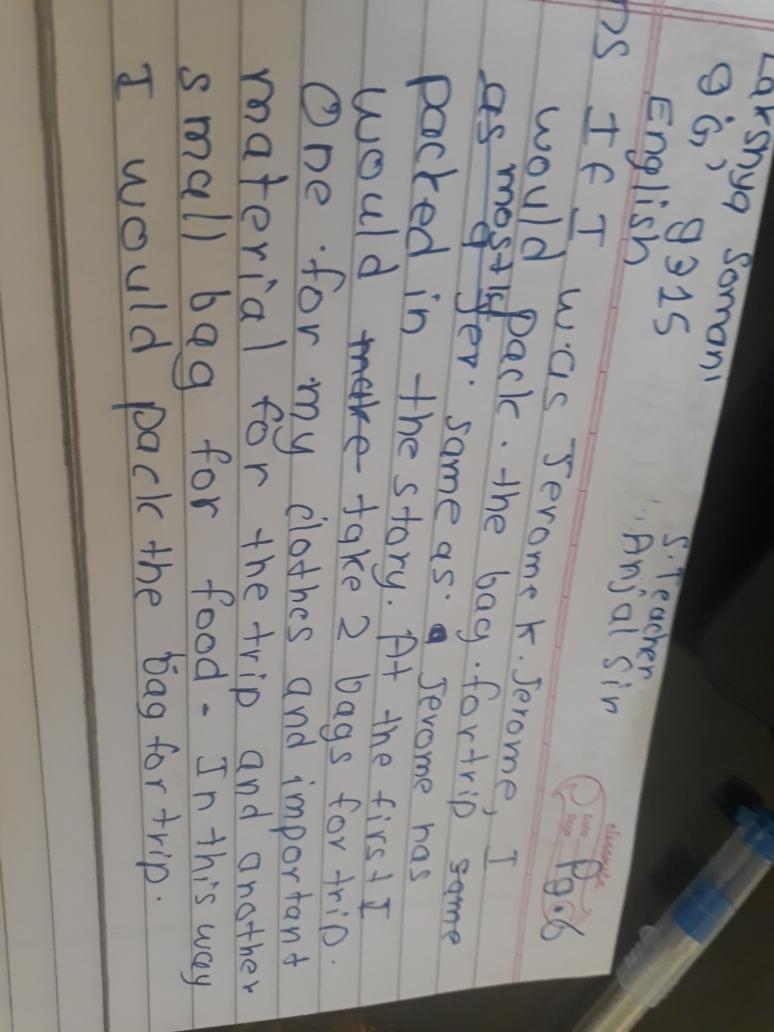 Lakshya Somani
9 'G', 9315
English
S.Teacher
Anjal Sir
classmate
Date
Page
Pg.6
If I was Jerome K. Jerome, I
would pack the bag for trip same
as mostly same as Jerome has
packed in the story. At the first I
would take 2 bags for trip.
One for my clothes and important
material for the trip and another
small bag for food. In this way
I would pack the bag for trip.